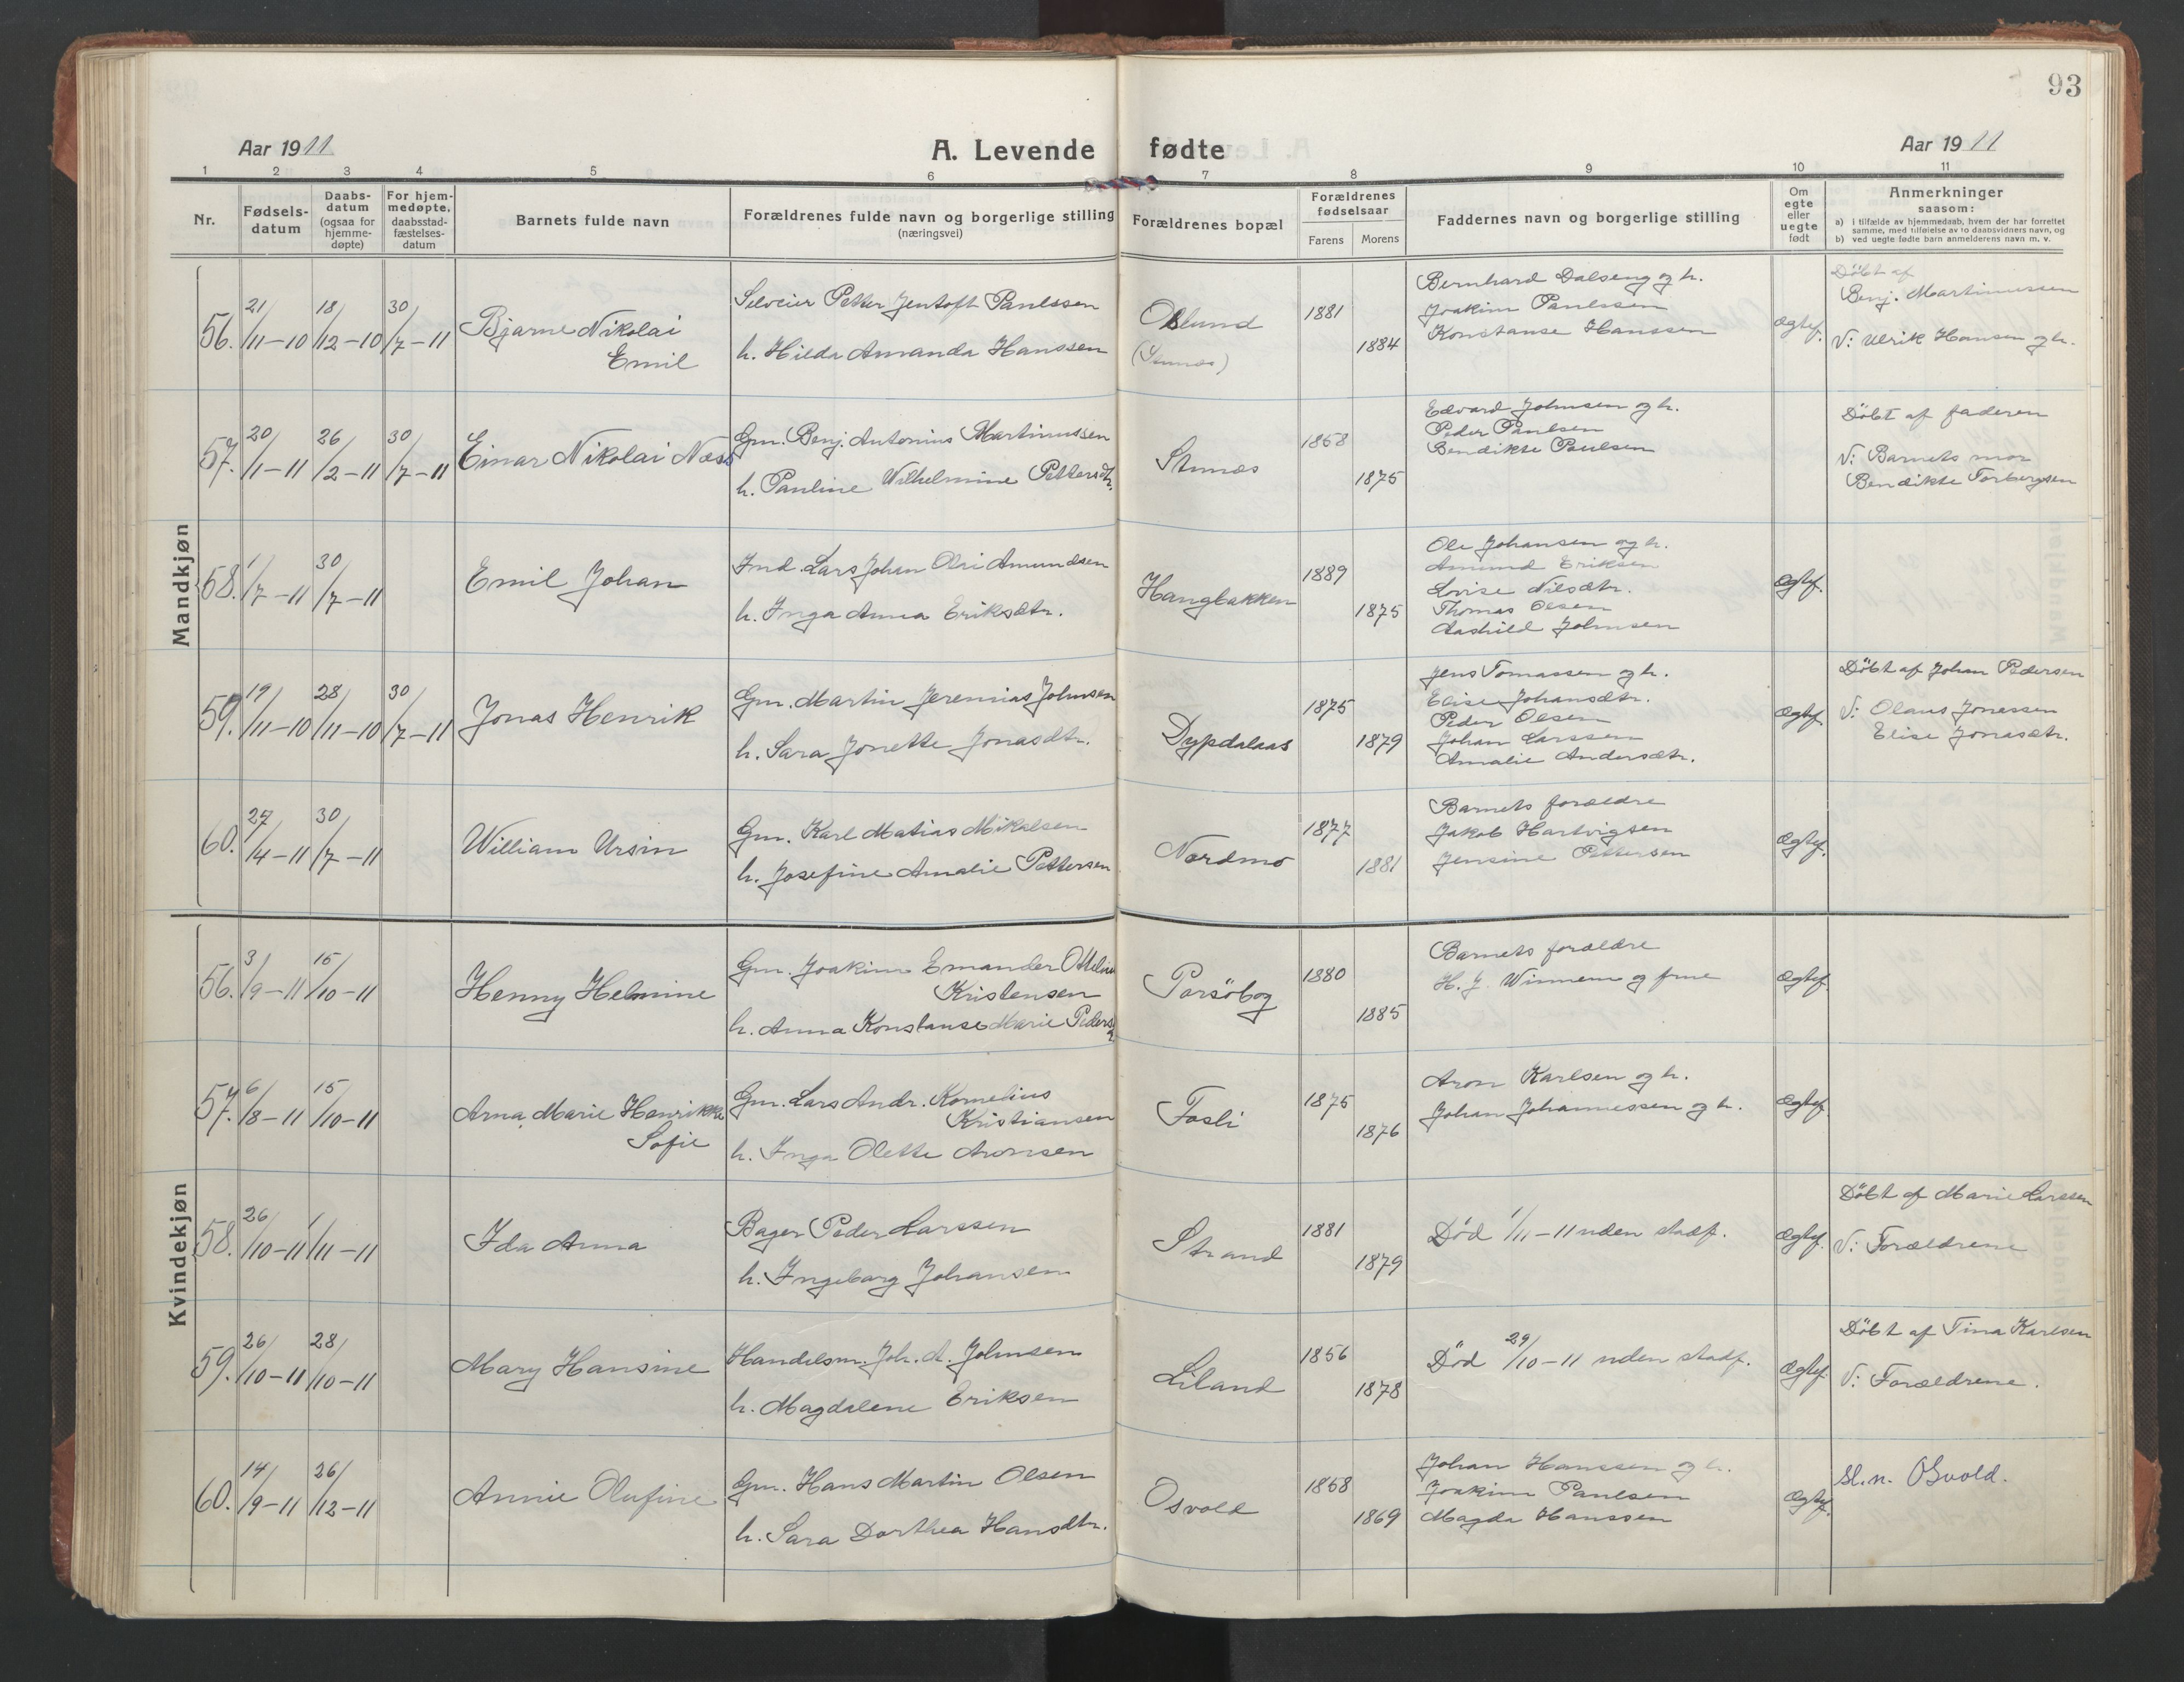 93
Aar 1911
A. Levende fødte
Aar 1911
1 2 3 4 5 6 7 8 9 10 11
Nr.
Fødsels-datum
Daabs-datum (ogsaa for hjemme-døpte)
For hjem-medøpte, daabsstad-fæstelses-datum
Barnets fulde navn
Forældrenes fulde navn og borgerlige stilling
(næringsvei)
Forældrenes bopæl
Forældrenes fødselsaar
Farens Morens
Faddernes navn og borgerlige stilling
Om egte eller uegte født
Anmerkninger
saasom:
a) i tilfælde av hjemmedaab, hvem der har forrettet samme, med tilføielse av to daabsvidners navn, og
b) ved uegte fødte barn anmelderens navn m. v.
Mandkjøn
56. 21/11-10 18/12-10 30/7-11
Bjarne Nikolai
Emil
Petter Jentoft Paulssen
h. Hilda Amanda Hanssen
1881
1884
Bernhard Dalseng og h.
Joakim Paulssen
Konstanse Hanssen
ægtef.
Döbt af
Benj. Martinussen
V: Ulrik Hansen og h.
57. 20/1-11 26/2-11 30/7-11
Einar Nikolai Næss
Gm. Benj. Antonius Martinussen
h. Pauline Wilhelmine Pettersdtr.
Stnnæs
1868
1875
Edvard Johnsen og h.
Peder Paulsen
Bendikte Paulsen
Döbt af faderen
V: Barnets mor
Bendikte Torbergsen
58. 1/7-11 30/7-11
Emil Johan
Ind. Lars Johan Olai Amundsen
h. Inga Anna Eriksdtr.
Hangbakken
1889
1875
Ole Johansen og h.
Amund Eriksen
Lovise Nilsdtr.
Thomas Olsen
Aashild Johnsen
ægtef.
59. 19/11-10 28/11-10 30/7-11
Jonas Henrik
Gm. Martin Jeremias Johnsen
h. Sara Jonette Jonasdtr.
Dypdalaas
1875
1879
Jens Tomassen og h.
Elise Johansdtr.
Peder Olsen
Johan Larssen
Amalie Andersdtr.
ægtef.
Döbt af Johan Pedersen
V: Olaus Jonassen
Elise Jonasdtr.
60. 27/4-11 30/7-11
William Ursin
Gm. Karl Matias Mikalsen
h. Josefine Amalie Pettersen
Nordmo
1877
1881
Barnets forældre
Jakob Hartvigsen
Jensine Pettersen
ægtef.
Kvindekjøn
56. 3/9-11 15/10-11
Henny Helmine
Gm. Joakim Emander
Kristensen
h. Anna Konstanse Marie
1880
1885
Barnets forældre
H. J. Winnem og frue
ægtef.
57. 6/8-11 15/10-11
Arna Marie Henrikke
Sofie
Gm. Lars Andr. Kornelius
Kristiansen
h. Inga Olette Aronsen
Fosli
1875
1876
Aron Karlsen og h.
Johan Johannessen og h.
ægtef.
58. 26/10-11 1/11-11
Ida Anna
Bager Peder Larssen
h. Ingeborg Johansen
Strand
1881
1879
Död 1/11-11 uden stadf.
ægtef.
Döbt af Marie Larssen
V: Forældrene
59. 26/10-11 28/10-11
Mary Hansine
Handelsm. Joh. A. Johnsen
h. Magdalene Eriksen
Liland
1856
1878
Död 29/10-11 uden stadf.
ægtef.
Döbt af Tina Karlsen
V: Forældrene.
60. 14/9-11 26/12-11
Annie Olufine
Gm. Hans Martin Olsen
h. Sara Dorthea Hansdtr.
Osvold
1868
1869
Johan Hanssen og h.
Joakim Paulsen
Magda Hanssen
ægtef.
Sl.n. Osvold.